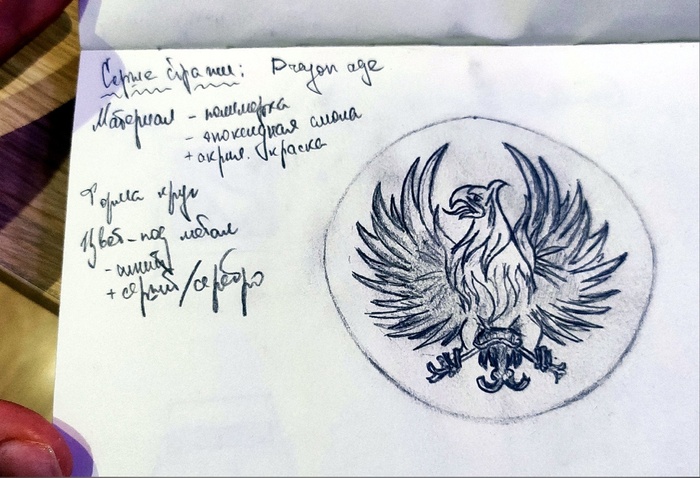 Серые стражи: Dragon age
Материал - полимерка
- эпоксидная смола
+ акрил. краска
Форма круг
Цвет - под метал
- синий
+ серый/серебро